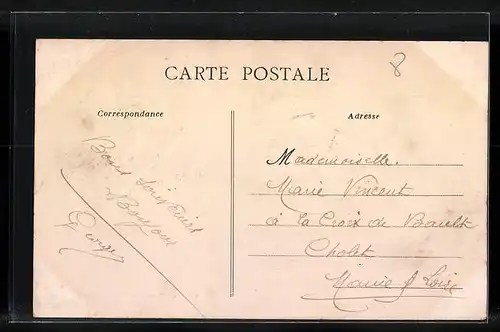 8
CARTE POSTALE
Correspondance
Bons Souvenirs
Bonjour
Georges
Adresse
Mademoiselle.
Marie Vincent
à la Croix de Bault
Cholet
Maine & Loire